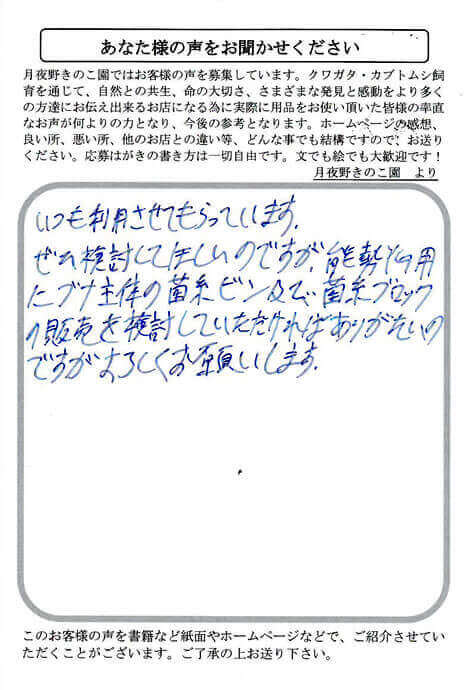 あなた様の声をお聞かせください
月夜野きのこ園ではお客様の声を募集しています。クワガタ・カブトムシ飼
育を通じて、自然との共生、命の大切さ、さまざまな発見と感動をより多く
の方達にお伝え出来るお店になる為に実際に用品をお使い頂いた皆様の率直
なお声が何よりの力となり、今後の参考となります。ホームページの感想、
良い所、悪い所、他のお店との違い等、どんな事でも結構ですので、お送り
ください。応募はがきの書き方は一切自由です。文でも絵でも大歓迎です！
月夜野きのこ園　より
いつも利用させてもらっています.
ぜひ検討してほしいのですが、能勢YG用
にブナ主体の菌糸ビン及び、菌糸ブロック
の販売を検討していただければありがたいの
ですがよろしくお願いします.
このお客様の声を書籍など紙面やホームページなどで、ご紹介させてい
ただくことがございます。ご了承の上お送り下さい。